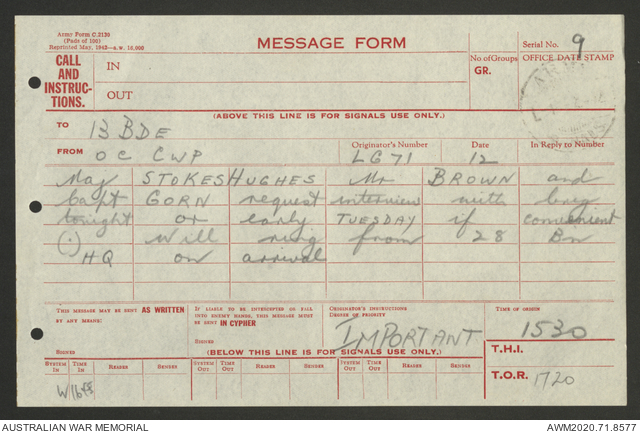 Army Form C.2136
(Pads of 100)
Reprinted May, 1943—
MESSAGE FORM
Serial No. 9
CALL AND INSTRUCTIONS.
IN
OUT
No of Groups
GR.
OFFICE DATE STAMP
(ABOVE THIS LINE IS FOR SIGNALS USE ONLY.)
TO 13 BDE
FROM OC CWP
Originator's Number LG71
Date 12
In Reply to Number
Maj STOKES HUGHES Mr BROWN and
Capt GORN request interview with brig
tonight or early TUESDAY if convenient
(.) Will ring from 28 Bn
HQ on arrival
THIS MESSAGE MAY BE SENT AS WRITTEN
BY ANY MEANS.
SIGNED
IF LIABLE TO BE INTERCEPTED OR FALL
INTO ENEMY HANDS, THIS MESSAGE MUST
BE SENT IN CIPHER
SIGNED
ORIGINATOR'S INSTRUCTIONS
DEGREE OF PRIORITY
IMPORTANT
TIME OF ORIGIN
1530
(BELOW THIS LINE IS FOR SIGNALS USE ONLY.)
T.H.I.
SYSTEM IN TIME IN READER SENDER SYSTEM OUT TIME OUT READER SENDER SYSTEM OUT TIME OUT READER SENDER
T.O.R. 1720
AUSTRALIAN WAR MEMORIAL
AWM2020.71.8577